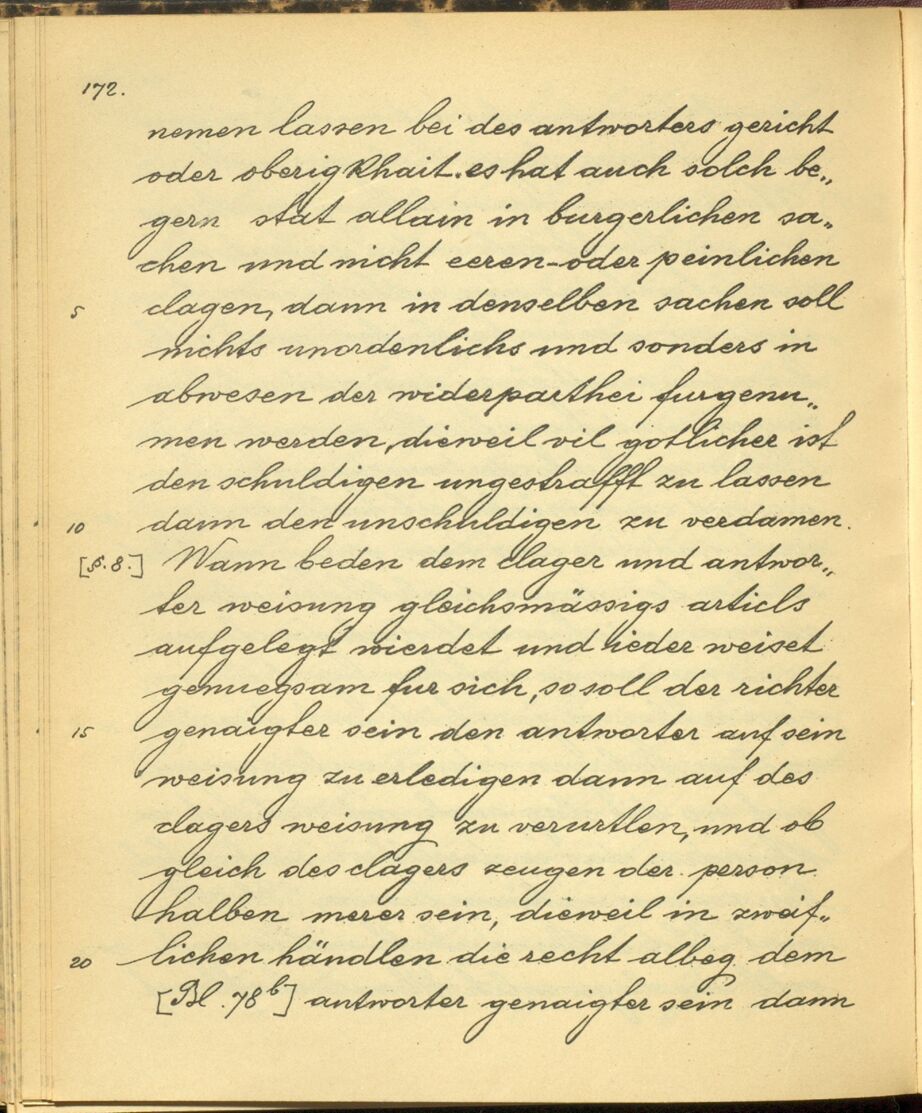 172.
nemen lassen bei des antworters gericht
oder oberigkhait. es hat auch solch be„
gern stat allain in burgerlichen sa„
chen und nicht eeren-oder peinlichen
5 clagen, dann in denselben sachen soll
nichts unordenlichs und sonders in
abwesen der widerparthei furgenu„
men werden, dieweil vil gotlicher ist
den schuldigen ungestrafft zu lassen
10 dann den unschuldigen zu verdamen.
[§. 8.] Wann beden dem clager und antwor„
ter weisung gleichsmässigs articls
aufgelegt wierdet und ieder weiset
genuegsam fur sich, so soll der richter
15 genaigter sein den antworter auf sein
weisung zu erledigen dann auf des
clagers weisung zu verurtlen, und ob
gleich des clagers zeugen der person
halben merer sein, dieweil in zweif„
20 lichen händlen die recht albeg dem
[Bl. 78b] antworter genaigter sein dann